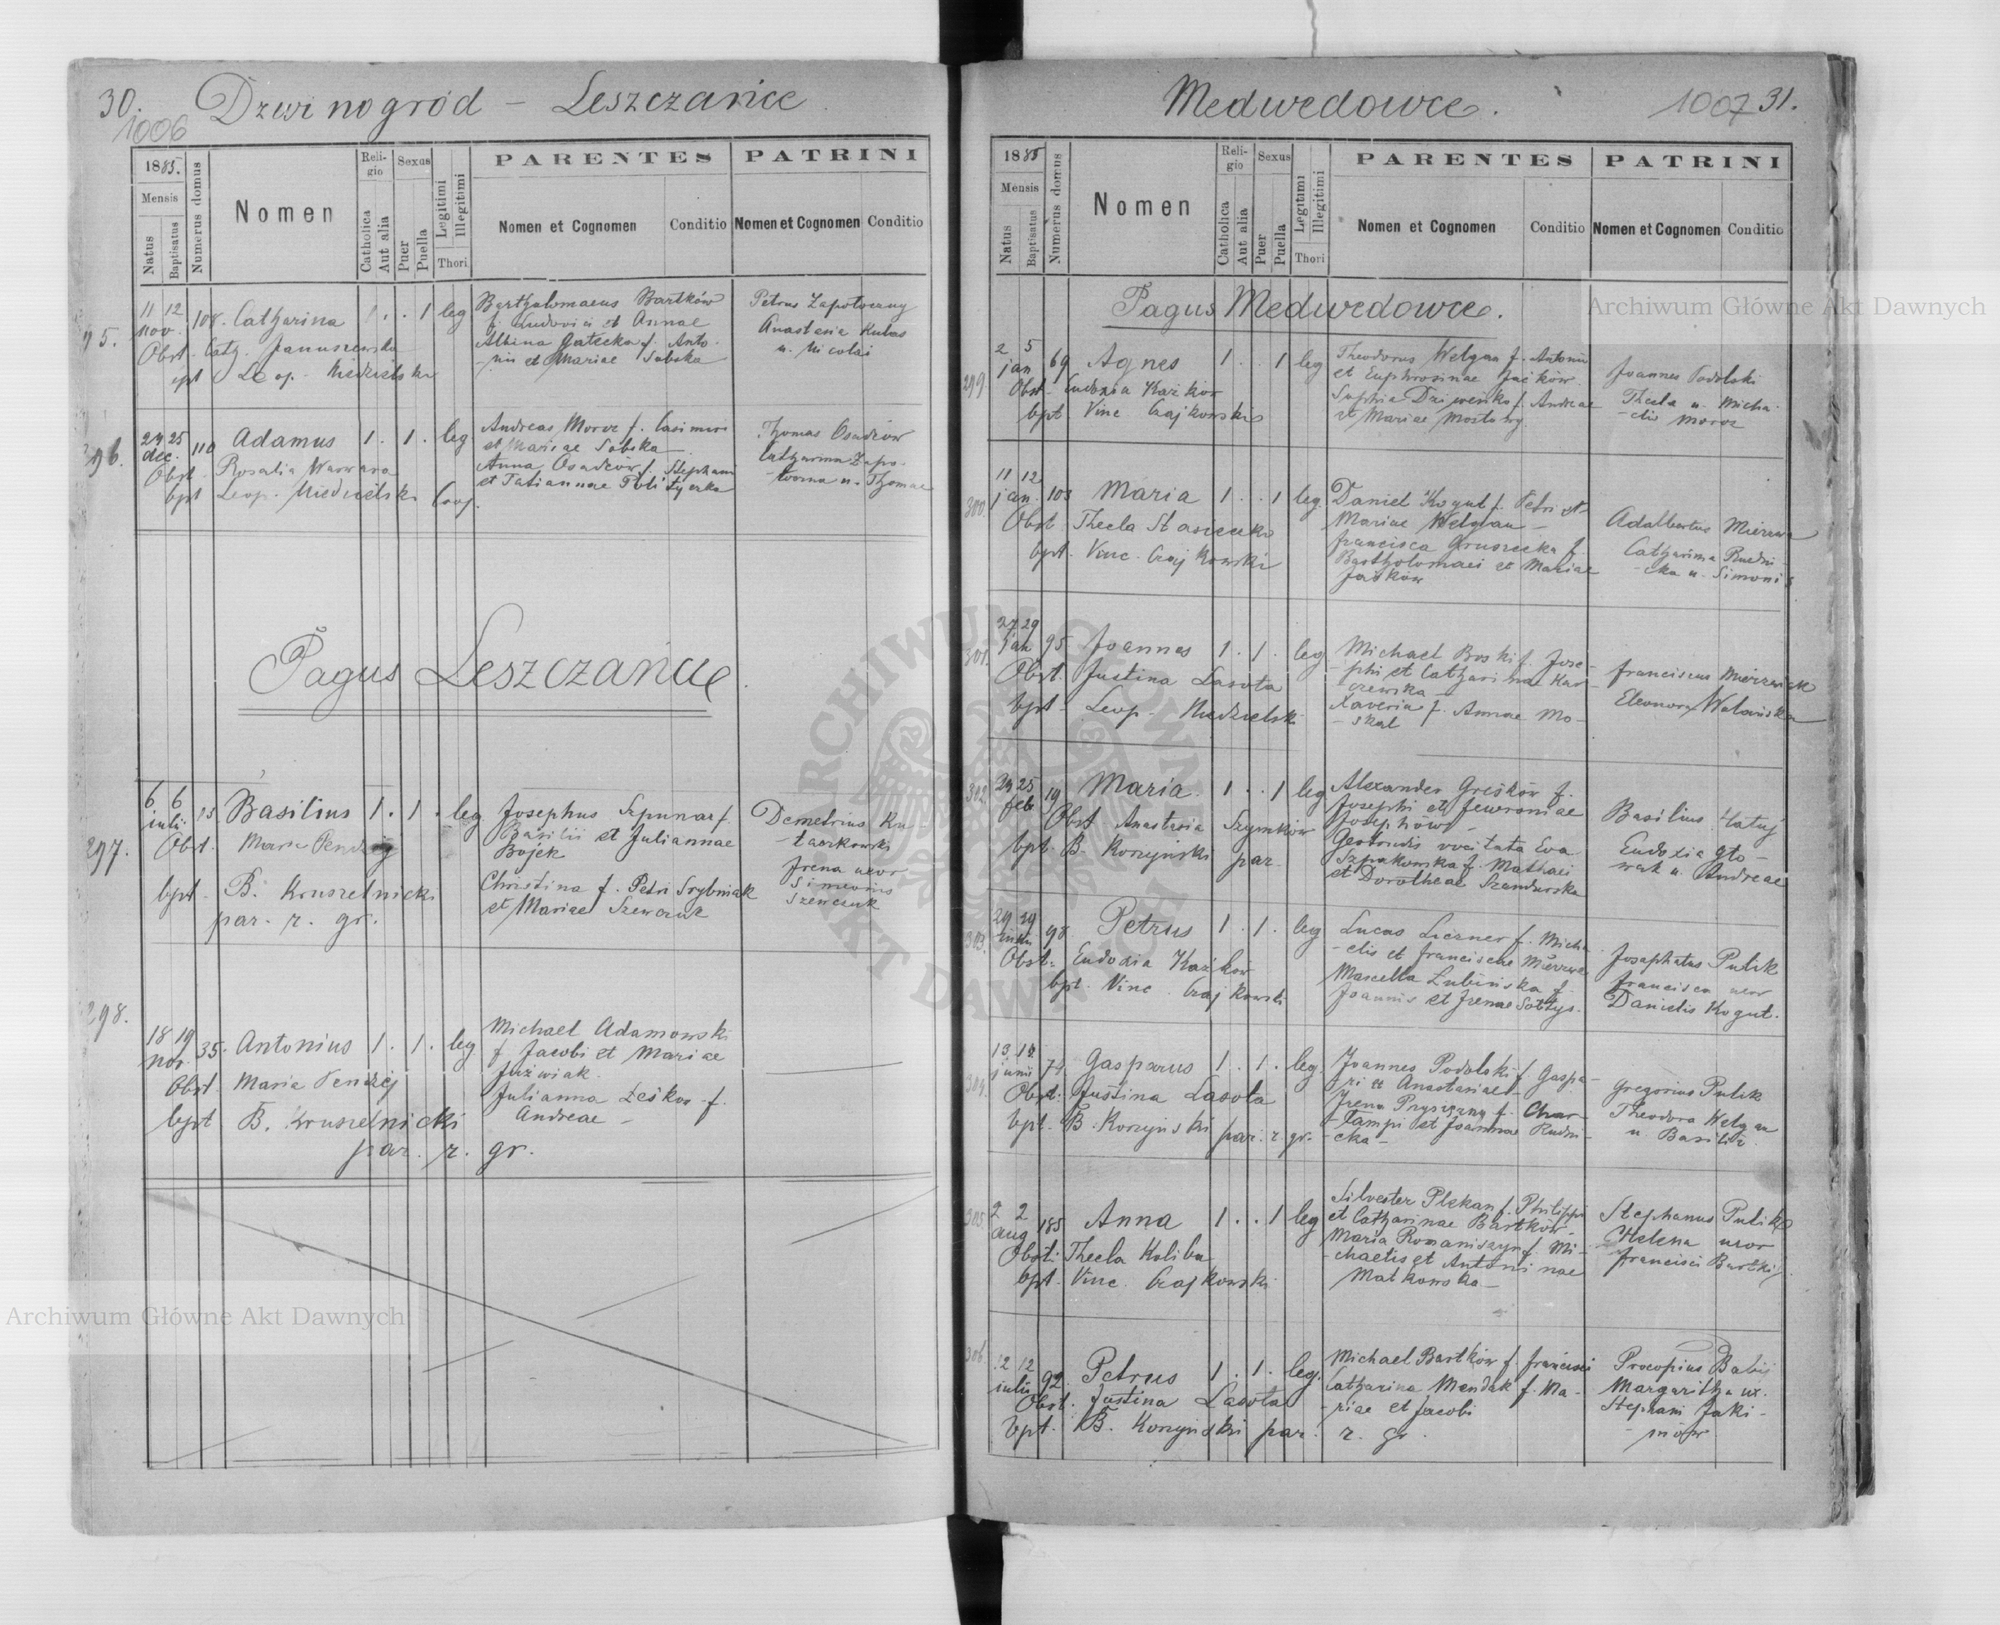 30. Dzwinogród - Leszczańce
1006
1885.
Mensis
Natus
Baptisatus
Numerus domus
Nomen
Religio
Catholica
Aut alia
Sexus
Puer
Puella
Legitimi
Illegitimi
Thori
PARENTES
Nomen et Cognomen
Conditio
PATRINI
Nomen et Cognomen
Conditio
11 12
nov. 108. Catharina 1 . . 1 leg
Obst. Cath. Januszewska
bpt Leop. Niedzielski
Bartholomaeus Bartków
f. Ludovici et Annae
Albina Gałecka f. Anto-
nii et Mariae Sobska
Petrus Zapotoczny
Anastasia Kubas
u. Nicolai
296.
24 25
dec. 110 Adamus 1 . 1 . leg
Obst. Rosalia Warwara
bpt Leop. Niedzielski Coop.
Andreas Moroz f. Casimiri
et Mariae Sobska
Anna Osadców f. Stephani
et Tatiannae
Thomas Osadców
Catharina Zapo-
toczna u. Thomae
Pagus Leszczańce.
297.
6 6
julii 23 Basilius 1 . 1 . leg
Obst. Maria Pendzej
bpt. B. Kruszelnicki
par. r. gr.
Josephus Szpunar f.
Basilii et Juliannae
Bojek
Christina f. Petri Srybniak
et Mariae Szewczuk
Demetrius Ku-
Irena uxor
Simeonis
Szewczuk
298.
18 19
nov. 35. Antonius 1 . 1 . leg
Obst. Maria Pendzej
bpt B. Kruszelnicki
par. r. gr.
Michael Adamowski
f. Jacobi et Mariae
Juźwiak.
Julianna Leśkow f.
Andreae -
Medwedowce.
1007 31.
1885
Mensis
Natus
Baptisatus
Numerus domus
Nomen
Religio
Catholica
Aut alia
Sexus
Puer
Puella
Legitimi
Illegitimi
Thori
PARENTES
Nomen et Cognomen
Conditio
PATRINI
Nomen et Cognomen
Conditio
Pagus Medwedowce.
299.
2 5
jan 69 Agnes 1 . . 1 leg
Obst. Eudoxia Kaźków
bpt Vinc Czajkowski
Theodorus Welgan f. Antonii
et Euphrosinae Jaćków.
Sophia f. Andreae
et Mariae Mostowy
Joannes Podolski
Thecla u. Micha-
elis Moroz
300.
11 12
jan. 103 Maria 1 . . 1 leg.
Obst. Thecla Stasieczko
bpt. Vinc. Czajkowski
Daniel Kogut f. Petri et
Mariae Welgan -
Francisca Gruszecka f.
Bartholomaei et Mariae
Jaćków
Adalbertus Mierzwa
Catharina Rudni-
cka u. Simonis
301.
27 29
jan 95 Joannes 1 . 1 . leg
Obst. Justina Lasota
bpt. Leop. Niedzielski
Michael Boski f. Jose-
phi et Catharinae Kar-
czewska -
Xaveria f. Annae Mo-
skal
Franciscus Mierzwick
Eleonora Wolańska
302.
24 25
feb 19 Maria. 1 . . 1 leg
Obst Anastasia Szymków
bpt. B. Konzyński par.
Alexander Greśków f.
Josephi et Fewroniae
Josephów -
Gertrudis vocitata Eva
Szpakowska f. Mathaei
et Dorotheae Szandurska
Basilius Hatuj
Eudoxia Gło-
wak u. Andreae
303.
29 29
98. Petrus 1 . 1 . leg
Obst. Eudoxia Kaźków
bpt. Vinc. Czajkowski
Lucas Liczner f. Micha-
elis et Franciscae Mierzwa
Marcella Lubińska f.
Joannis et Irenae Sołtys.
Josaphatus Pulik
Francisca uxor
Danielis Kogut.
304.
13 14
junii 74 Gasparus 1 . 1 . leg.
Obst. Justina Lasota
bpt. B. Konzyński par. r. gr.
Joannes Podolski f. Gaspa-
ri et Anastasiae -
Irena Prysiężny f. Char-
łampi et Joannae Rudni-
cka -
Gregorius Pulik
Theodora Welgan
u. Basilii
305.
2 2
aug 185 Anna 1 . . 1 leg
Obst. Thecla Koliba
bpt. Vinc. Czajkowski
Silvester Plekan f. Philippi
et Catharinae Bartków
Maria Romaniszyn f. Mi-
chaelis et Antoninae
Matkowska -
Stephanus Pulik
Helena uxor
Francisci Bartki
306.
12 12
julii 92. Petrus 1 . 1 . leg.
Obst. Justina Lasota
bpt. B. Konzyński par. r. gr.
Michael Bartków f. Francisci
Catharina Mendak f. Ma-
riae et Jacobi
Procopius Babij
Margaritha ux.
Stephani Jaki-
mów
Archiwum Główne Akt Dawnych
Archiwum Główne Akt Dawnych
ARCHIWUM GŁÓWNE AKT DAWNYCH